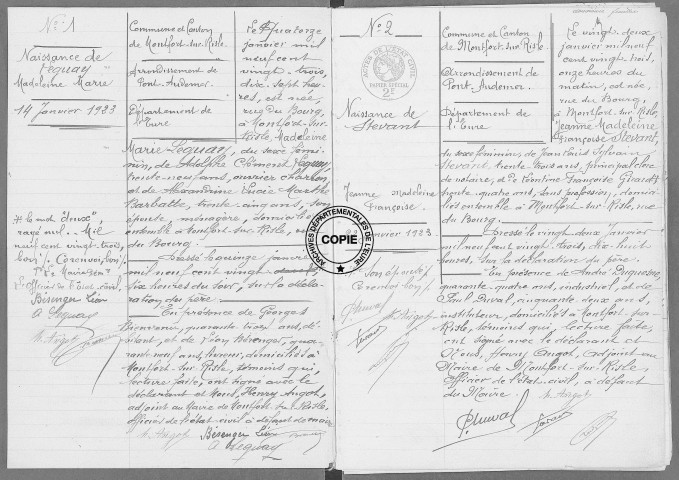 N° 1
Naissance de
Lequay
Madeleine Marie
14 Janvier 1923
le mot "deux",
rayé nul. Mil
neuf cent vingt trois,
Bérenger Léon
A Lequay
H. Angot
Commune et Canton
de Montfort-sur-Risle
Arrondissement de
Pont-Audemer
Département de
l'Eure
Le Quatorze
janvier mil
neuf cent
vingt-trois,
dix-sept heu-
res, est née,
rue du Bourg,
à Montfort-sur-
Risle, Madeleine
Marie Lequay, du sexe fémi-
nin, de Adolphe Clément Lequay,
trente-neuf ans, ouvrier charron
et de Alexandrine Lucie Marthe
Barbotte, trente cinq ans, son
épouse, ménagère, domiciliés
ensemble à Montfort-sur-Risle, rue
du Bourg.
Dressé le quinze janvier
mil neuf cent vingt
dix heures du soir, sur la décla-
ration du père.
En présence de Georges
Bienvenu, quarante trois ans, dé-
bitant, et de Léon Bérenger, qua-
rante neuf ans, domiciliés à
Montfort sur Risle, témoins qui,
lecture faite, ont signé avec le
déclarant et Nous, Henry Angot,
adjoint au Maire de Montfort-sur-Risle,
officier de l'état civil à défaut de maire
H. Angot Bérenger Léon
A Lequay
N° 2
ACTES DE L'ÉTAT CIVIL
PAPIER SPÉCIAL
2F
Naissance de
Stevant
Jeanne Madeleine
Françoise
janvier 1923
ARCHIVES DÉPARTEMENTALES DE L'EURE
COPIE
P. Duval
H. Angot
Commune et Canton
de Montfort-sur-Risle
Arrondissement de
Pont-Audemer
Département de
l'Eure
Le vingt deux
janvier mil neuf
cent vingt trois,
onze heures du
matin, est née,
rue du Bourg,
à Montfort-sur-
Risle, Jeanne Madeleine
Françoise Stevant,
du sexe féminin, de Jean Louis Sylvain
Stevant, trente-trois ans, principal clerc
de notaire, et de Léontine Françoise
trente quatre ans, sans profession, domici-
liés ensemble à Montfort sur Risle, rue
du Bourg.
Dressé le vingt deux Janvier
mil neuf cent vingt trois, dix huit
heures, sur la déclaration du père.
En présence de André Duquesne,
quarante quatre ans, industriel, et de
Paul Duval, cinquante deux ans,
instituteur, domiciliés à Montfort sur
Risle, témoins qui, lecture faite,
ont signé avec le déclarant et
Nous, Henry Angot, adjoint au
Maire de Montfort-sur-Risle,
officier de l'état civil, à défaut
du Maire. H. Angot
P. Duval